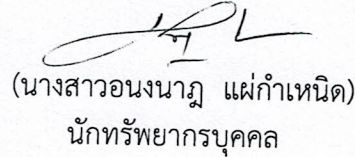 (นางสาวอนงนาฎ แผ่กำเหนิด)
นักทรัพยากรบุคคล